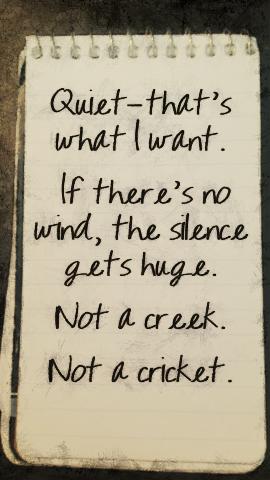 Quiet-that's
what I want.
If there's no
wind, the silence
gets huge.
Not a creek.
Not a cricket.